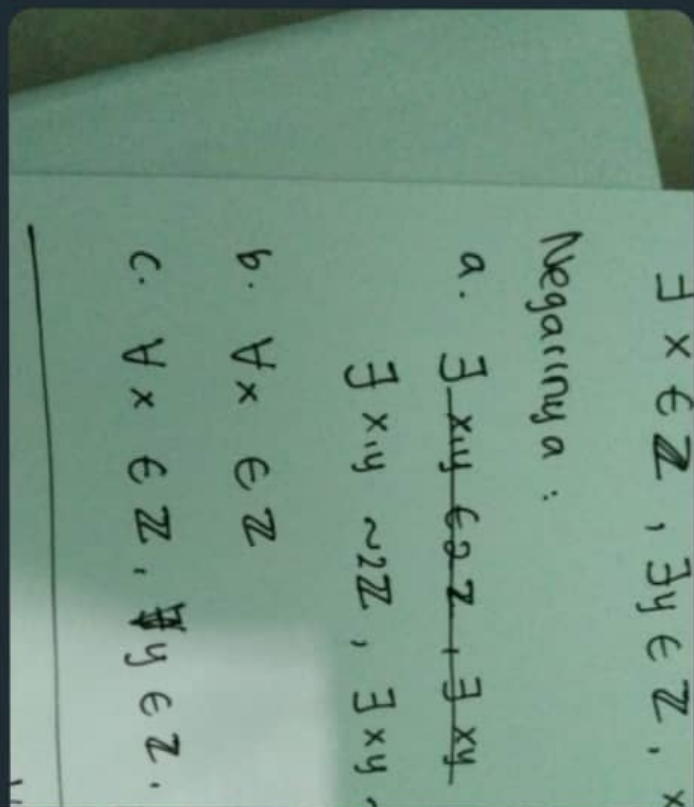 ∃ x ∈ ℤ , ∃y ∈ ℤ , x
Negasinya :
a. ∃ x,y ∈ 2ℤ , ∃ xy
∃ x,y ~2ℤ , ∃ xy ~
b. ∀ x ∈ ℤ
c. ∀ x ∈ ℤ , ∀y ∈ ℤ .